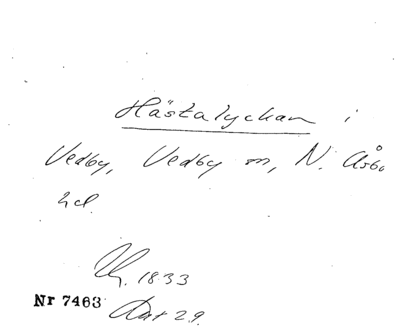 Hästalyckan i
Vedby, Vedby sn, N. Åsbo
hd.
1833
Nr 7463
Akt 29.